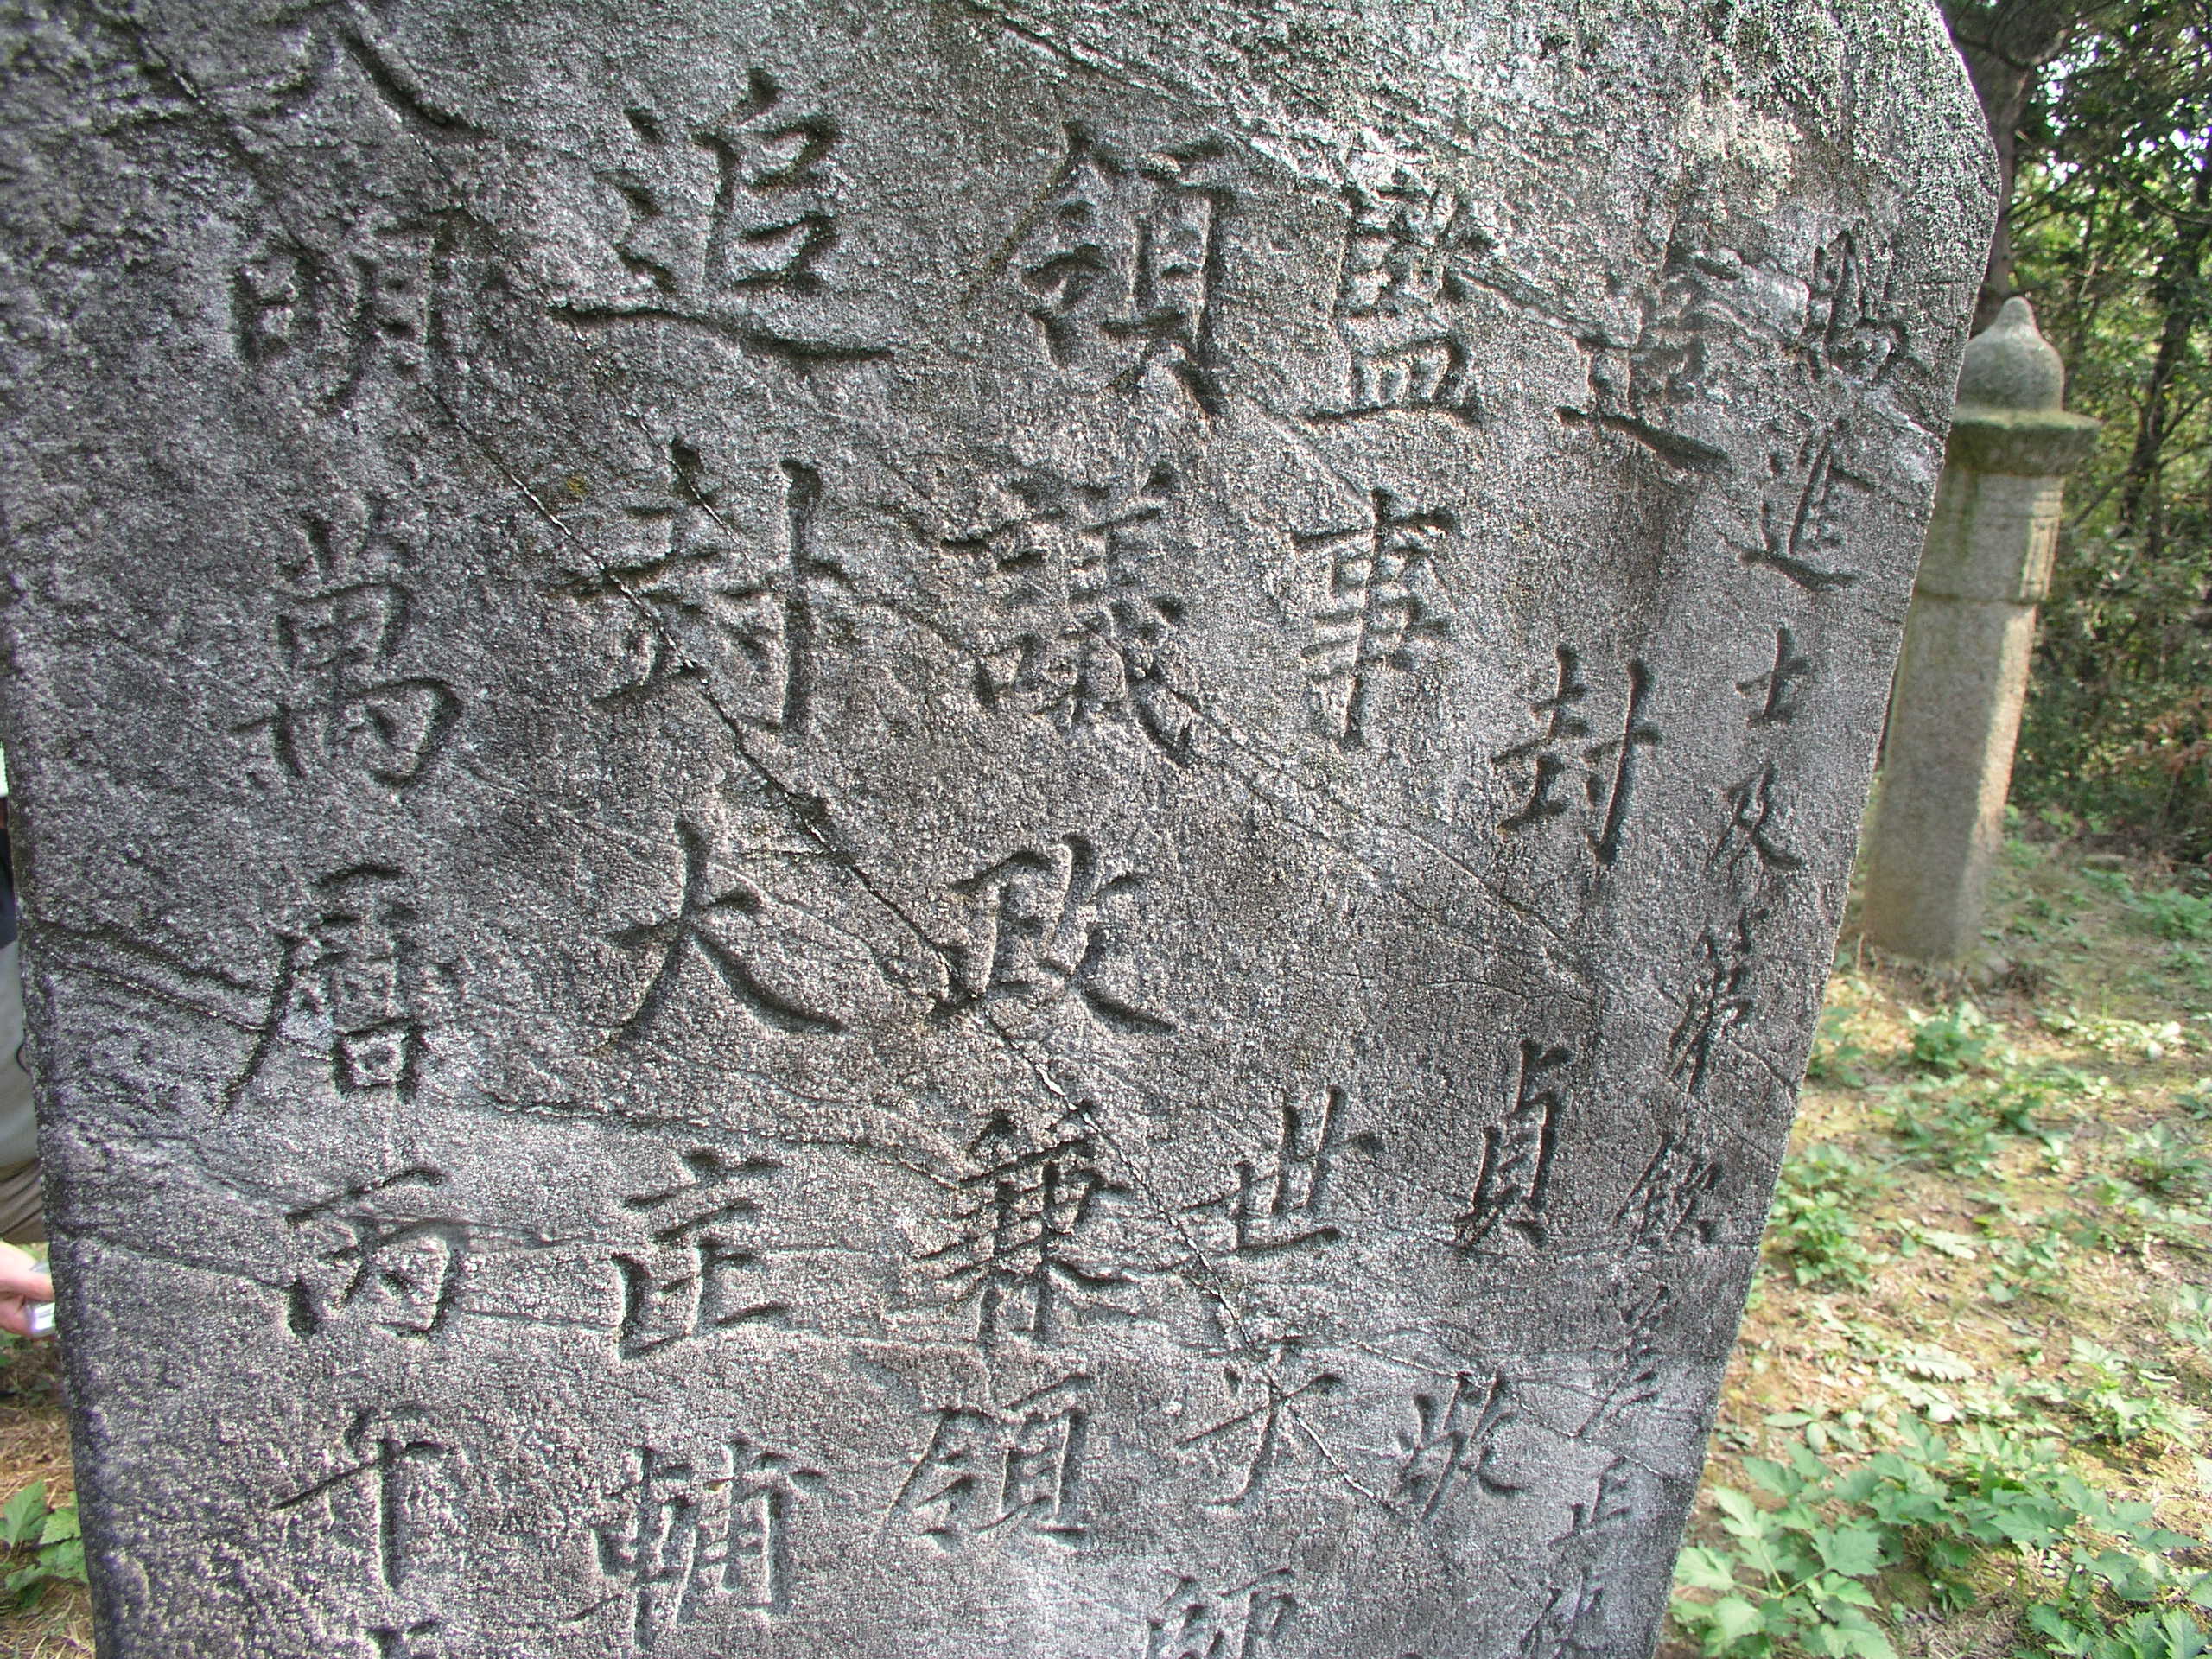 賜進士及第欽差正使
封貞敬
監事世子師
領議政兼領
追封大匡輔
明萬曆丙午